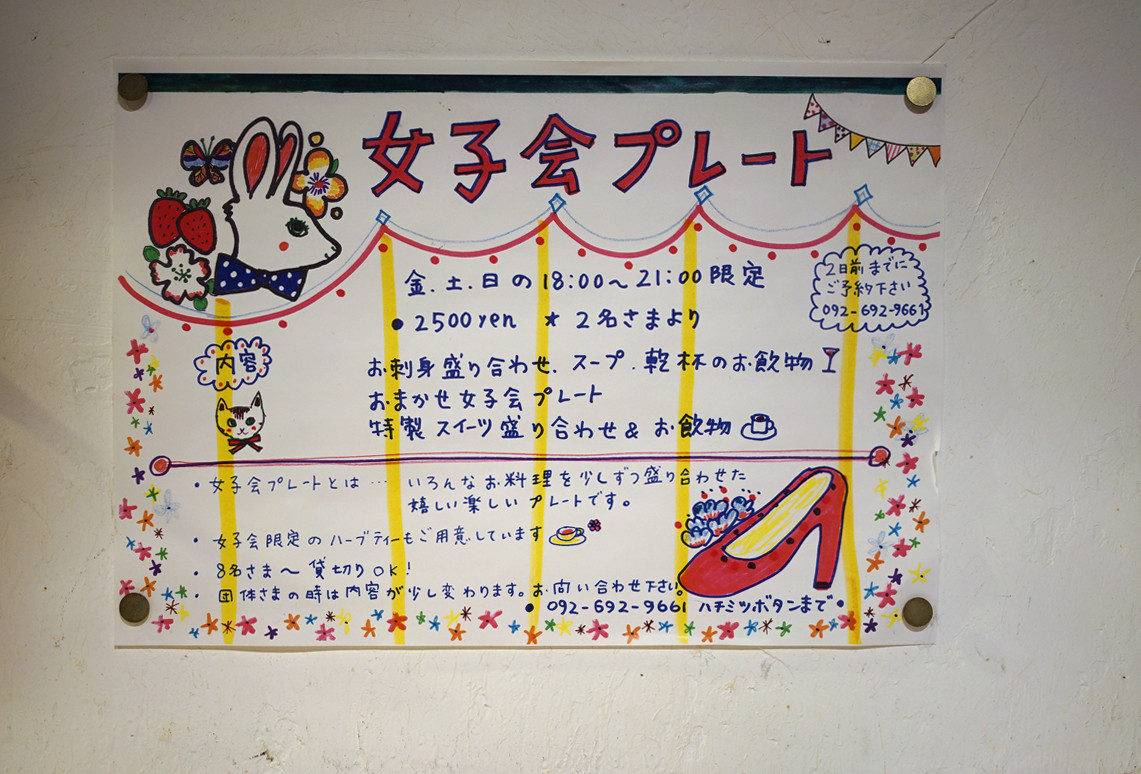 女子会プレート
金.土.日の18:00〜21:00限定
2日前までに
ご予約下さい
092-692-9661
● 2500yen ★ 2名さまより
内容
お刺身盛り合わせ、スープ、乾杯のお飲物
おまかせ女子会プレート
特製スイーツ盛り合わせ & お飲物
・女子会プレートとは… いろんなお料理を少しずつ盛り合わせた
嬉しい楽しいプレートです。
・女子会限定のハーブティーもご用意しています
・8名さま〜貸切りOK!
・団体さまの時は内容が少し変わります。お問い合わせ下さい。
● 092-692-9661 ハチミツボタンまで●